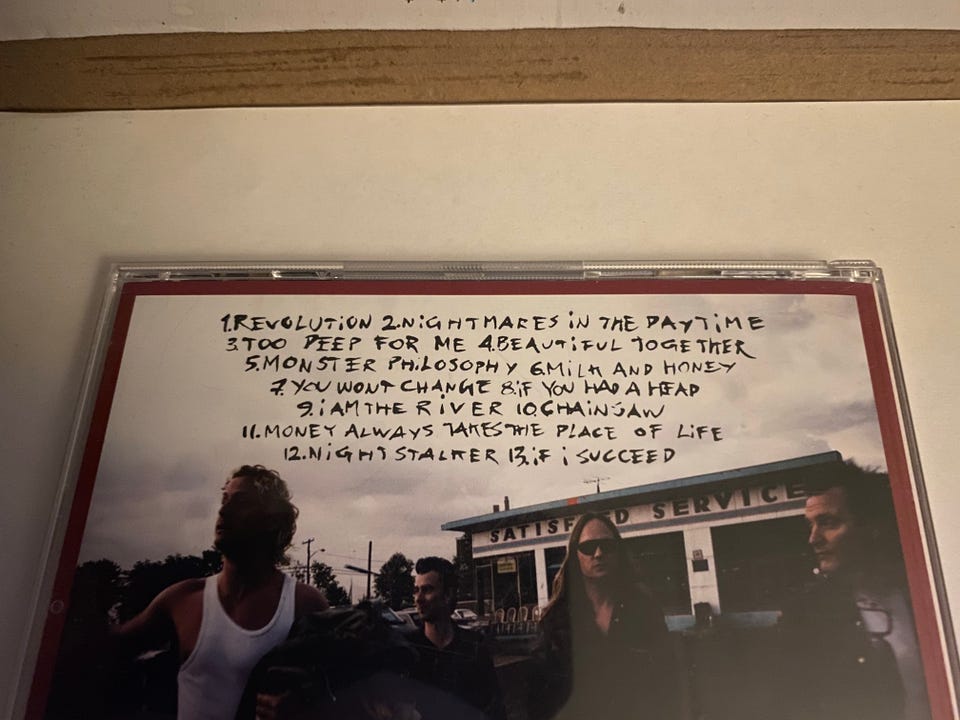 1.REVOLUTION 2.NiGHTMARES iN THE DAYTiME
3.TOO DEEP FOR ME 4.BEAUTiFUL TOGETHER
5.MONSTER PHiLOSOPHY 6.MiLK AND HONEY
7.YOU WONT CHANGE 8.iF YOU HAD A HEAD
9.i AM THE RiVER 10.CHAiNSAW
11.MONEY ALWAYS TAKES THE PLACE OF LiFE
12.NiGHT STALKER 13.iF i SUCCEED
SATISFIED SERVICE